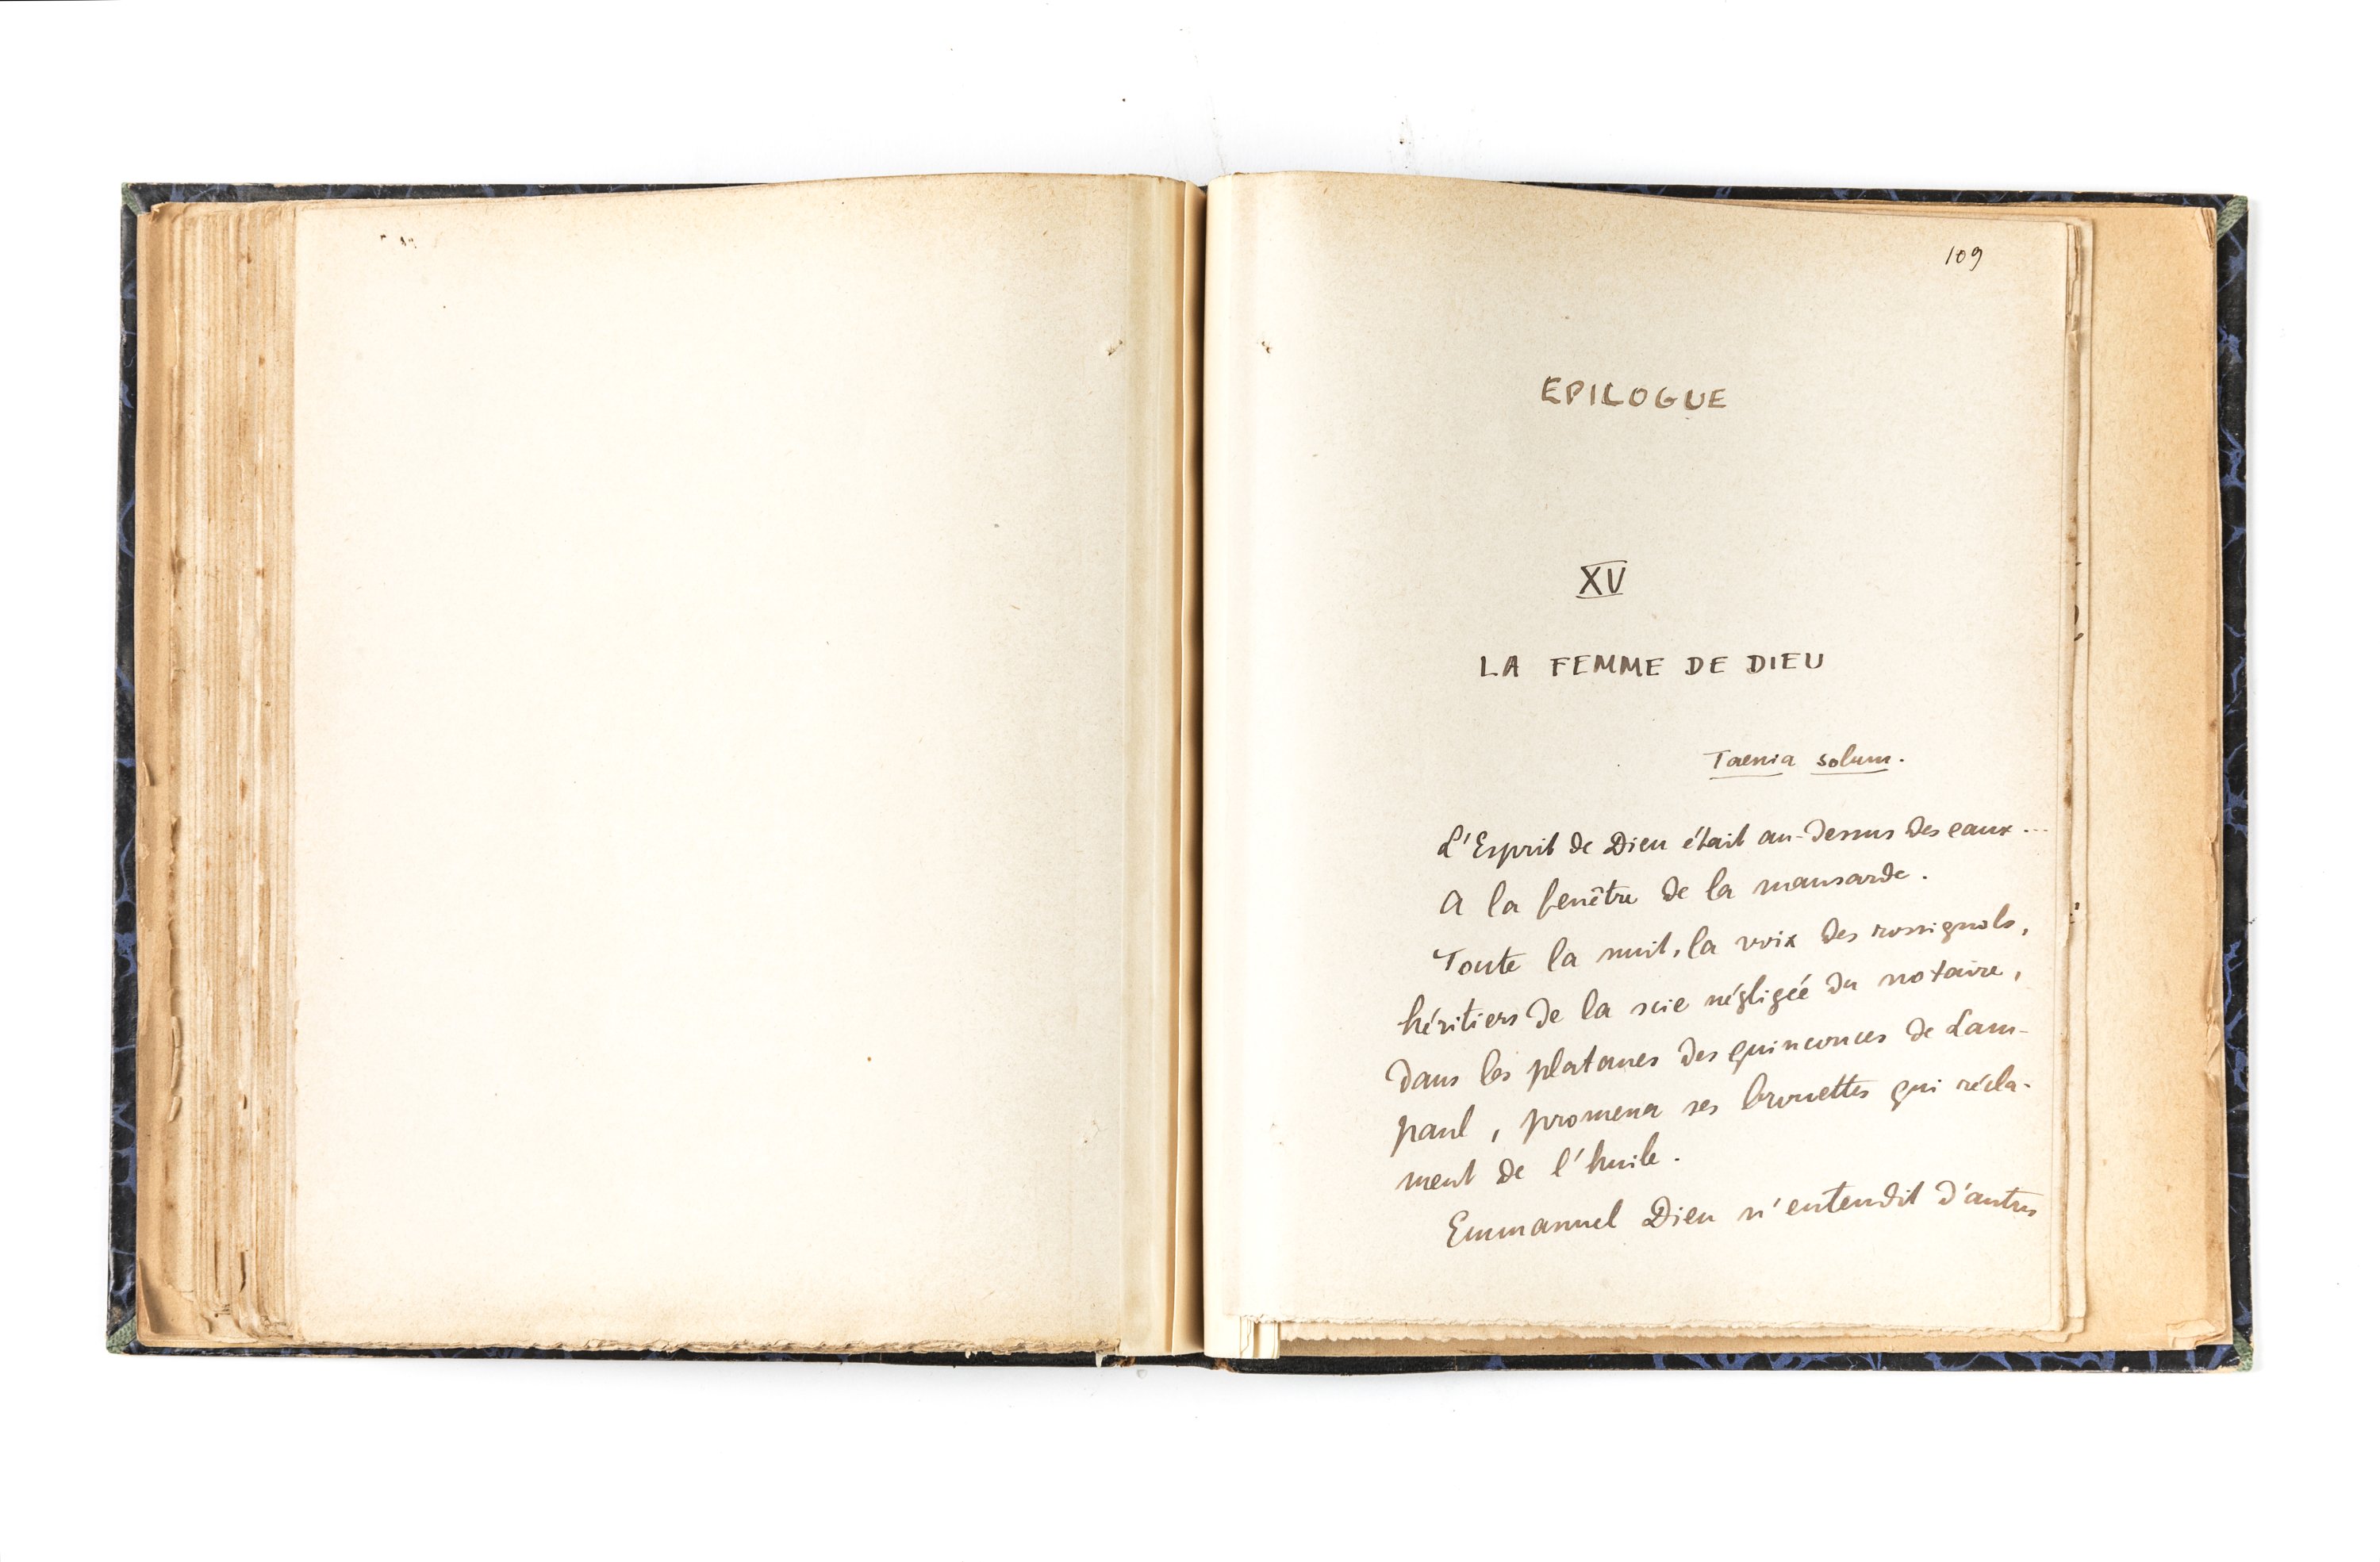 109
EPILOGUE
XV
LA FEMME DE DIEU
Taenia solum.
L'Esprit de Dieu était au-dessus des eaux...
A la fenêtre de la mansarde.
Toute la nuit, la voix des rossignols,
héritiers de la scie négligée du notaire,
dans les platanes des quinconces de Lam-
paul, promena ses brouettes qui récla-
ment de l'huile.
Emmanuel Dieu n'entendit d'autres